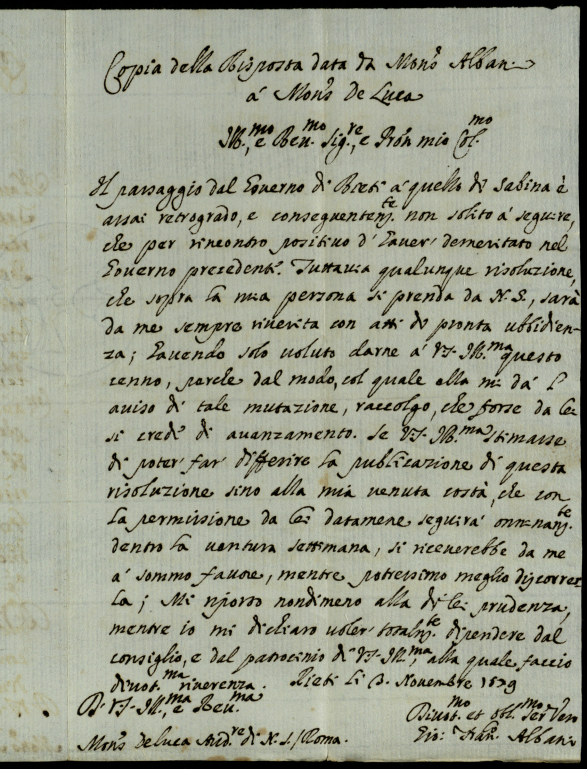 Copia della Risposta data da Mons.r Albani
á Mons.r De Luca
Ill.mo, e Reu.mo Sig.re, e Pron mio Col.mo
Il passaggio dal Gouerno di Rieti á quello di Sabina è
assai retrogrado, e conseguentem.te non solito á seguire,
che per rincontro positiuo d'hauer demeritato nel
Gouerno precedente. Tuttauia qualunque risoluzione,
che sopra la mia persona si prenda da N.S., sarà
da me sempre riuerita con atti di pronta ubbidien-
za; hauendo solo voluto darne á V.S. Ill.ma questo
cenno, perche dal modo, col quale ella mi dá l'
auiso di tale mutazione, raccolgo, che forse da lei
si crede di auanzamento. Se V.S. Ill.ma stimasse
di poter far differire la publicazione di questa
risoluzione sino alla mia venuta costà, che con
la permissione da lei datamene seguirá onninam.te
dentro la ventura settimana, si riceuerebbe da me
á sommo fauore, mentre potressimo meglio discorrer
la; Mi riporto nondimeno alla di lei prudenza,
mentre io mi dichiaro voler totalm.te dipendere dal
consiglio, e dal patrocinio di V.S. Ill.ma, alla quale faccio
diuot.ma riuerenza. Rieti li 3. Novembre 1679
Di V.S. Ill.ma e Reu.ma
Diuot.mo et obl.mo Ser Vero
Mons.r De Luca Aud.re di N.S./Roma.
Gio: Fran. Albani